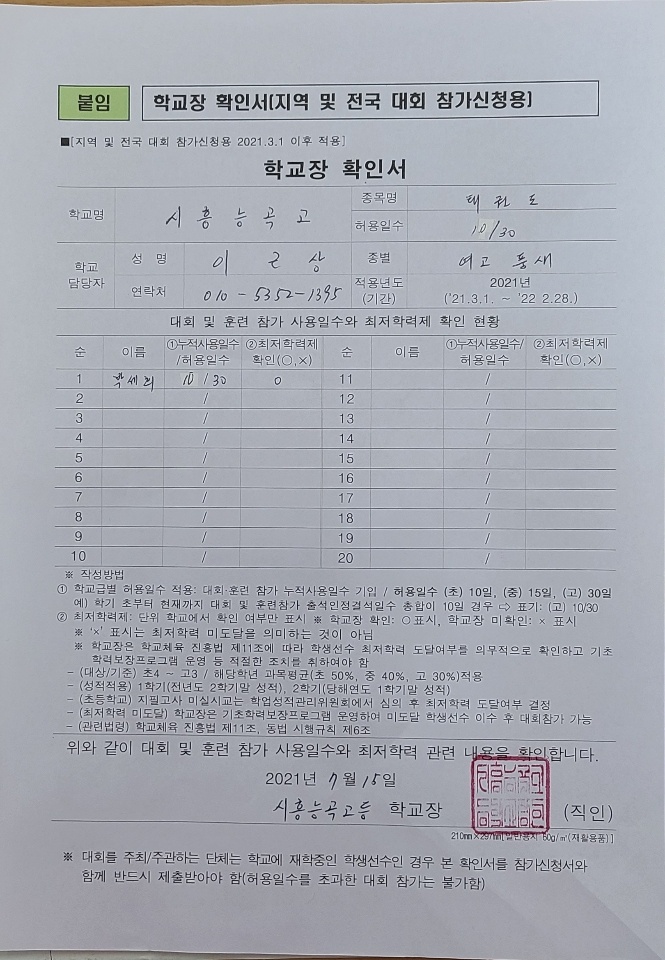 붙임 학교장 확인서(지역 및 전국 대회 참가신청용)
■[지역 및 전국 대회 참가신청용 2021.3.1 이후 적용]
학교장 확인서
학교명 시흥능곡고 종목명 태권도
허용일수 10/30
학교 담당자 성 명 이근상 종별 여고 품새
연락처 010-5352-1395 적용년도 (기간) 2021년 ('21.3.1. ~ '22 2.28.)
대회 및 훈련 참가 사용일수와 최저학력제 확인 현황
순 이름 ①누적사용일수/허용일수 ②최저학력제 확인(○,×) 순 이름 ①누적사용일수/허용일수 ②최저학력제 확인(○,×)
1 박세희 10/30 0 11 /
2 / 12 /
3 / 13 /
4 / 14 /
5 / 15 /
6 / 16 /
7 / 17 /
8 / 18 /
9 / 19 /
10 / 20 /
※ 작성방법
① 학교급별 허용일수 적용: 대회·훈련 참가 누적사용일수 기입 / 허용일수 (초) 10일, (중) 15일, (고) 30일
예) 학기 초부터 현재까지 대회 및 훈련참가 출석인정결석일수 총합이 10일 경우 ⇨ 표기: (고) 10/30
② 최저학력제: 단위 학교에서 확인 여부만 표시 ※ 학교장 확인: ○표시, 학교장 미확인: × 표시
※ '×' 표시는 최저학력 미도달을 의미하는 것이 아님
※ 학교장은 학교체육 진흥법 제11조에 따라 학생선수 최저학력 도달여부를 의무적으로 확인하고 기초
학력보장프로그램 운영 등 적절한 조치를 취하여야 함
- (대상/기준) 초4 ~ 고3 / 해당학년 과목평균(초 50%, 중 40%, 고 30%)적용
- (성적적용) 1학기(전년도 2학기말 성적), 2학기(당해연도 1학기말 성적)
- (초등학교) 지필고사 미실시교는 학업성적관리위원회에서 심의 후 최저학력 도달여부 결정
- (최저학력 미도달) 학교장은 기초학력보장프로그램 운영하여 미도달 학생선수 이수 후 대회참가 가능
- (관련법령) 학교체육 진흥법 제11조, 동법 시행규칙 제6조
위와 같이 대회 및 훈련 참가 사용일수와 최저학력 관련 내용을 확인합니다.
2021년 7월 15일
시흥능곡고등 학교장 (직인)
210㎜×297㎜[일반용지 60g/㎡(재활용품)]
※ 대회를 주최/주관하는 단체는 학교에 재학중인 학생선수인 경우 본 확인서를 참가신청서와
함께 반드시 제출받아야 함(허용일수를 초과한 대회 참가는 불가함)